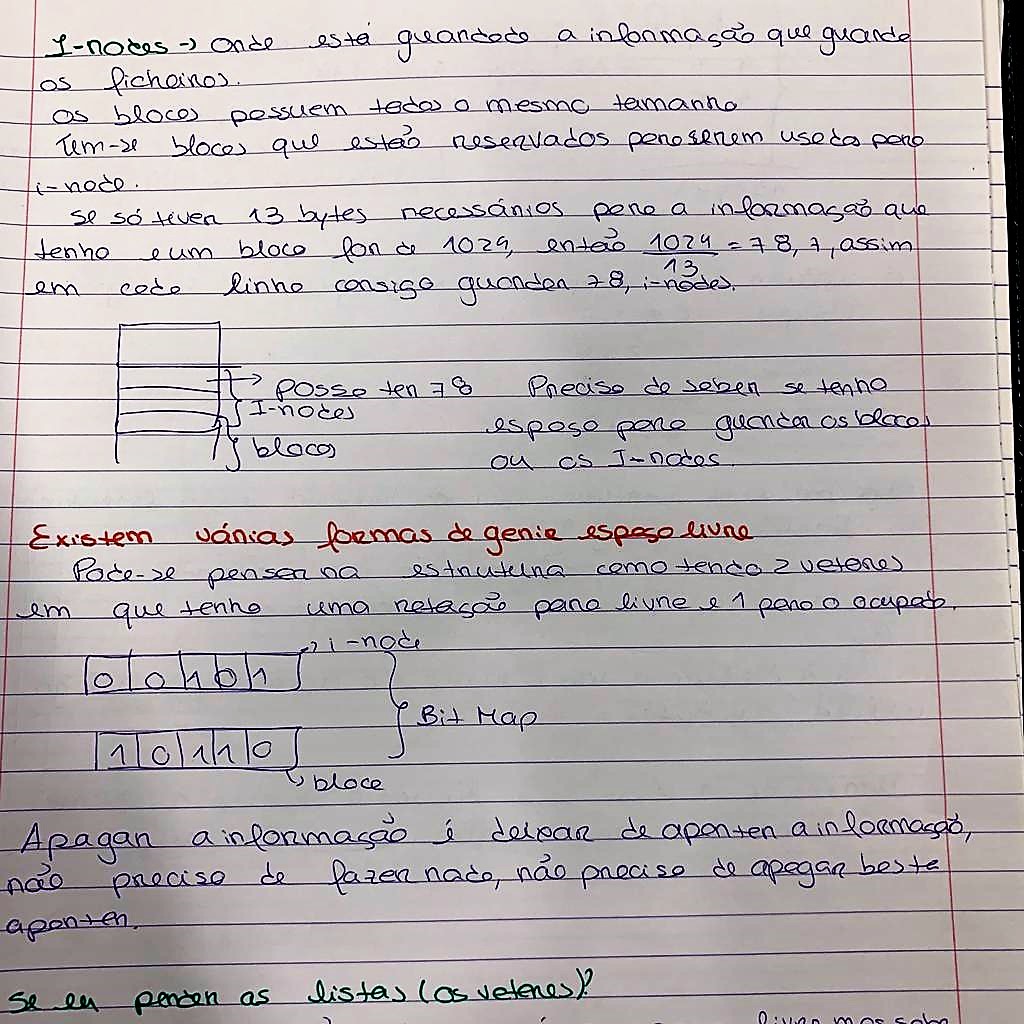 I-nodes → Onde está guardado a informação que guarda
os ficheiros.
Os blocos possuem todos o mesmo tamanho
Tem-se blocos que estão reservados para serem usado para
i-node.
Se só tiver 13 bytes necessários para a informação que
tenho e um bloco for de 1024, então 1024/13 = 78,7, assim
em cada linha consigo guardar 78, i-nodes.
→ Posso ter 78
I-nodes
blocos
Preciso de saber se tenho
espaço para guardar os blocos
ou os I-nodes.
Existem várias formas de gerir espaço livre
Pode-se pensar na estrutura como tendo 2 vetores
em que tenho uma notação para livre e 1 para o ocupado.
→ i-node
0 0 1 0 1
Bit Map
1 0 1 1 0
↳ bloco
Apagar a informação é deixar de apontar a informação,
não preciso de fazer nada, não preciso de apagar basta
apontar.
Se eu perder as listas (os vetores)?